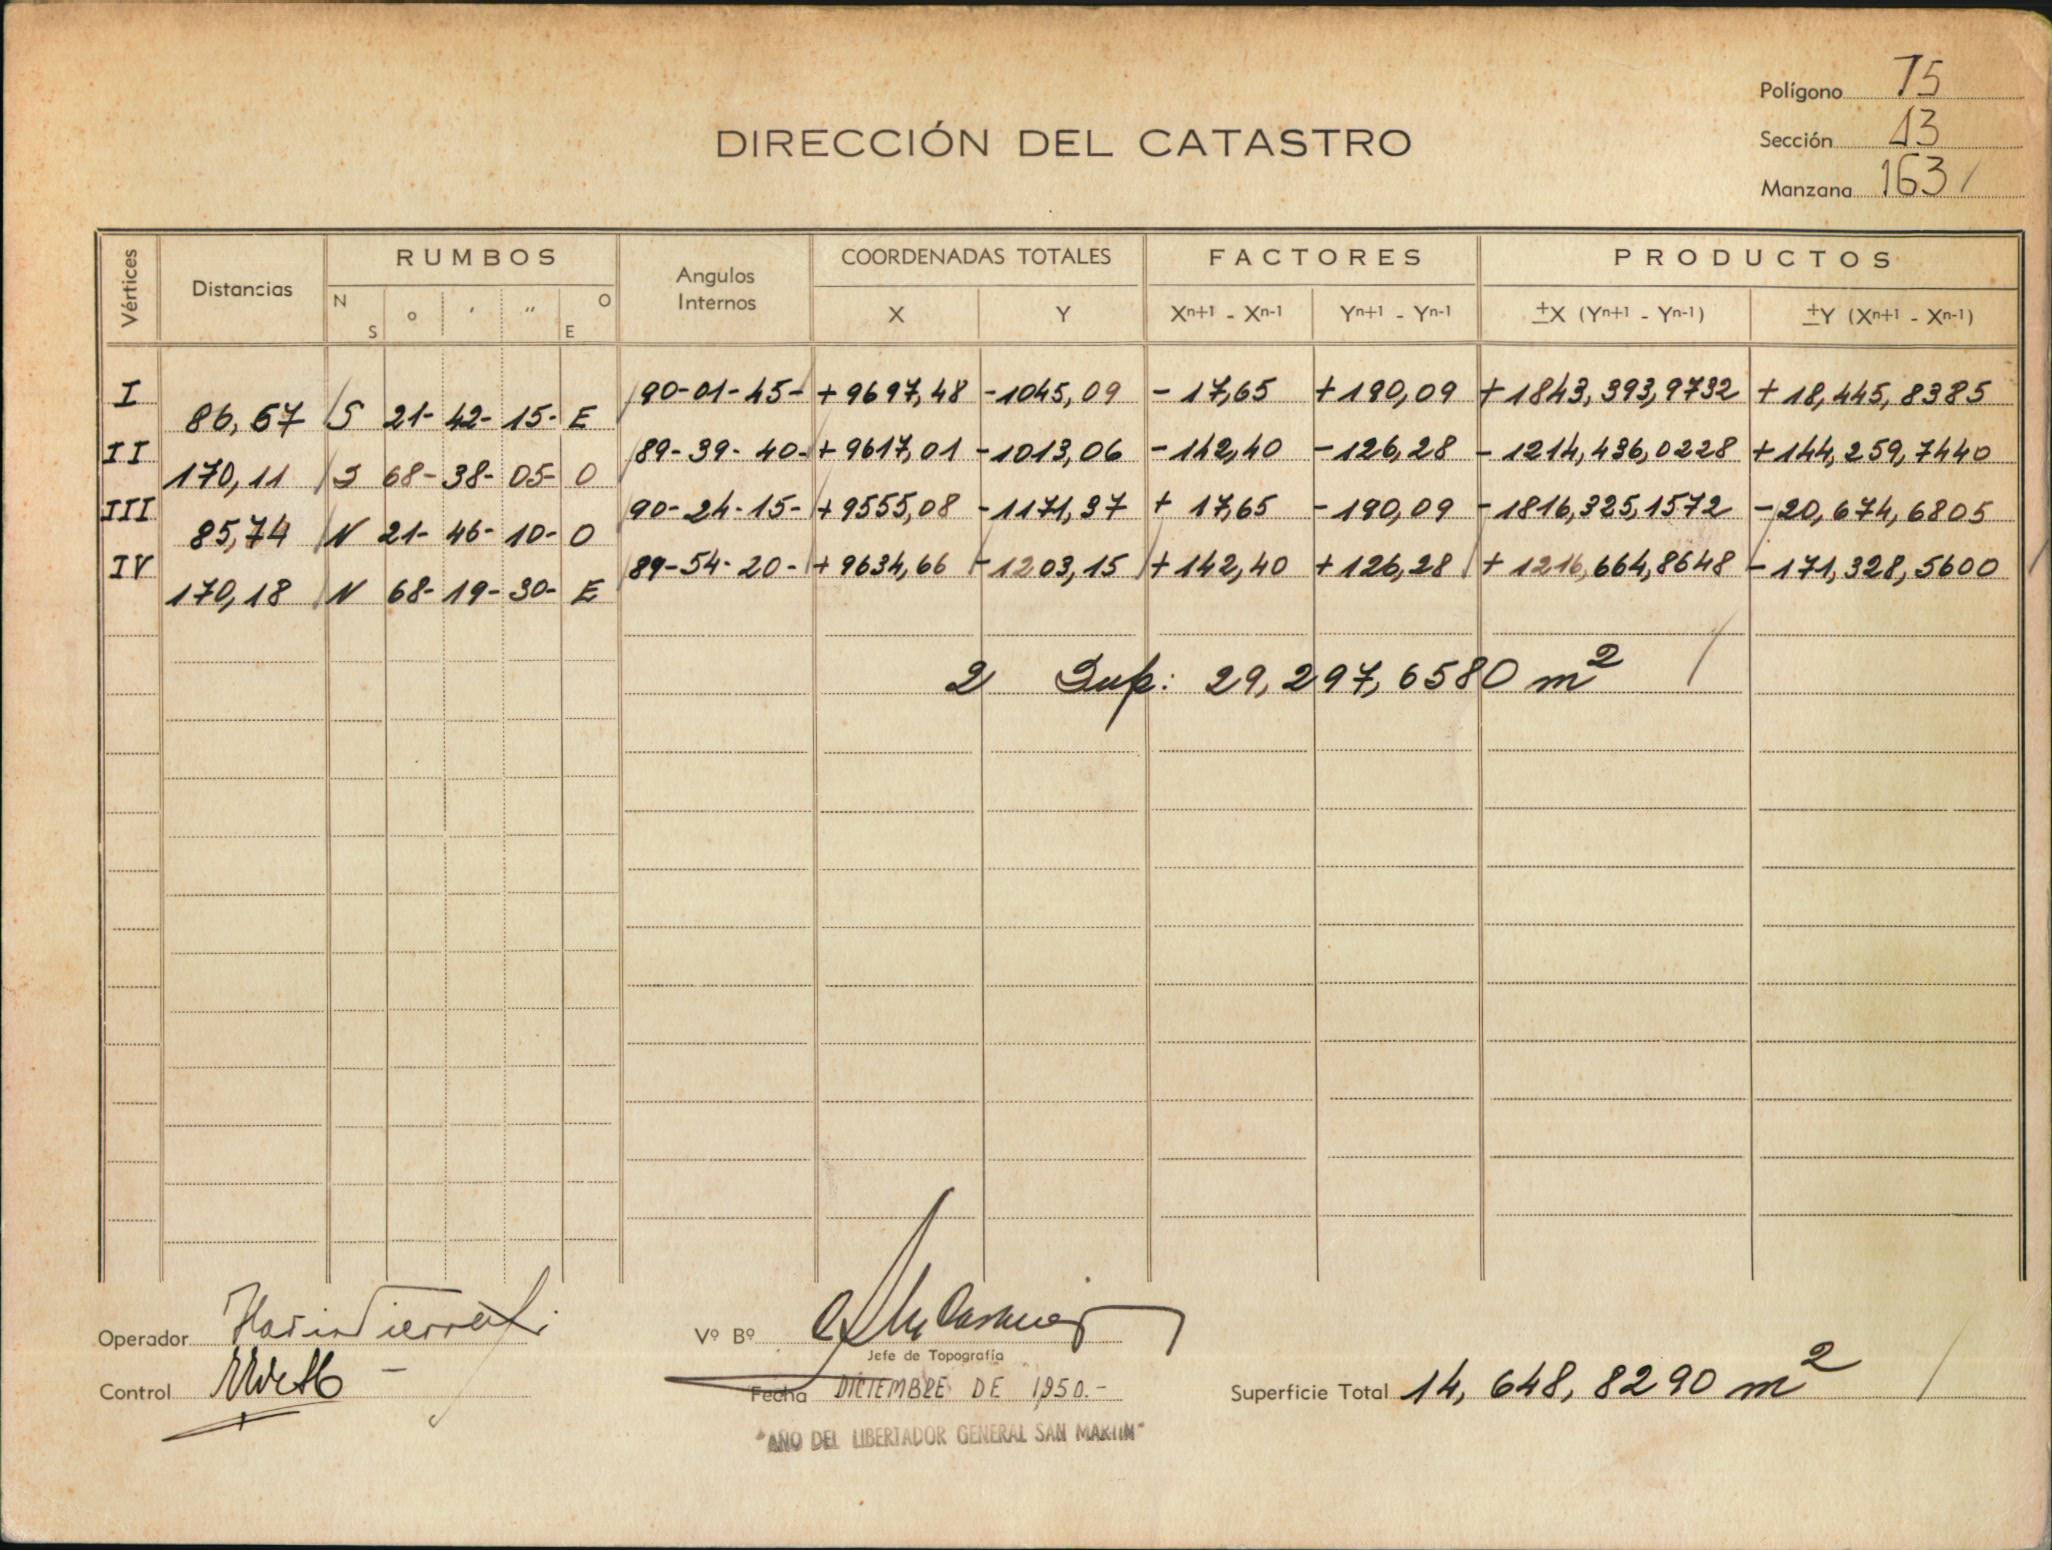 Polígono 75
DIRECCIÓN DEL CATASTRO
Sección 13
Manzana 163
Vértices Distancias RUMBOS Angulos Internos COORDENADAS TOTALES FACTORES PRODUCTOS
N S o ' '' O E X Y Xn+1 - Xn-1 Yn+1 - Yn-1 ±X (Yn+1 - Yn-1) ±Y (Xn+1 - Xn-1)
I 90-01-45- +9697,48 -1045,09 -17,65 +190,09 +1843,393,9732 +18,445,8385
86,67 S 21-42-15- E
II 89-39-40- +9617,01 -1013,06 -142,40 -126,28 -1214,436,0228 +144,259,7440
170,11 S 68-38-05- O
III 90-24-15- +9555,08 -1171,37 +17,65 -190,09 -1816,325,1572 -20,674,6805
85,74 N 21-46-10- O
IV 89-54-20- +9634,66 -1203,15 +142,40 +126,28 +1216,664,8648 -171,328,5600
170,18 N 68-19-30- E
2 Sup: 29,297,6580 m2
Operador
Vº Bº
Jefe de Topografía
Control
Fecha DICIEMBRE DE 1950.-
Superficie Total 14,648,8290 m2
"AÑO DEL LIBERTADOR GENERAL SAN MARTIN"